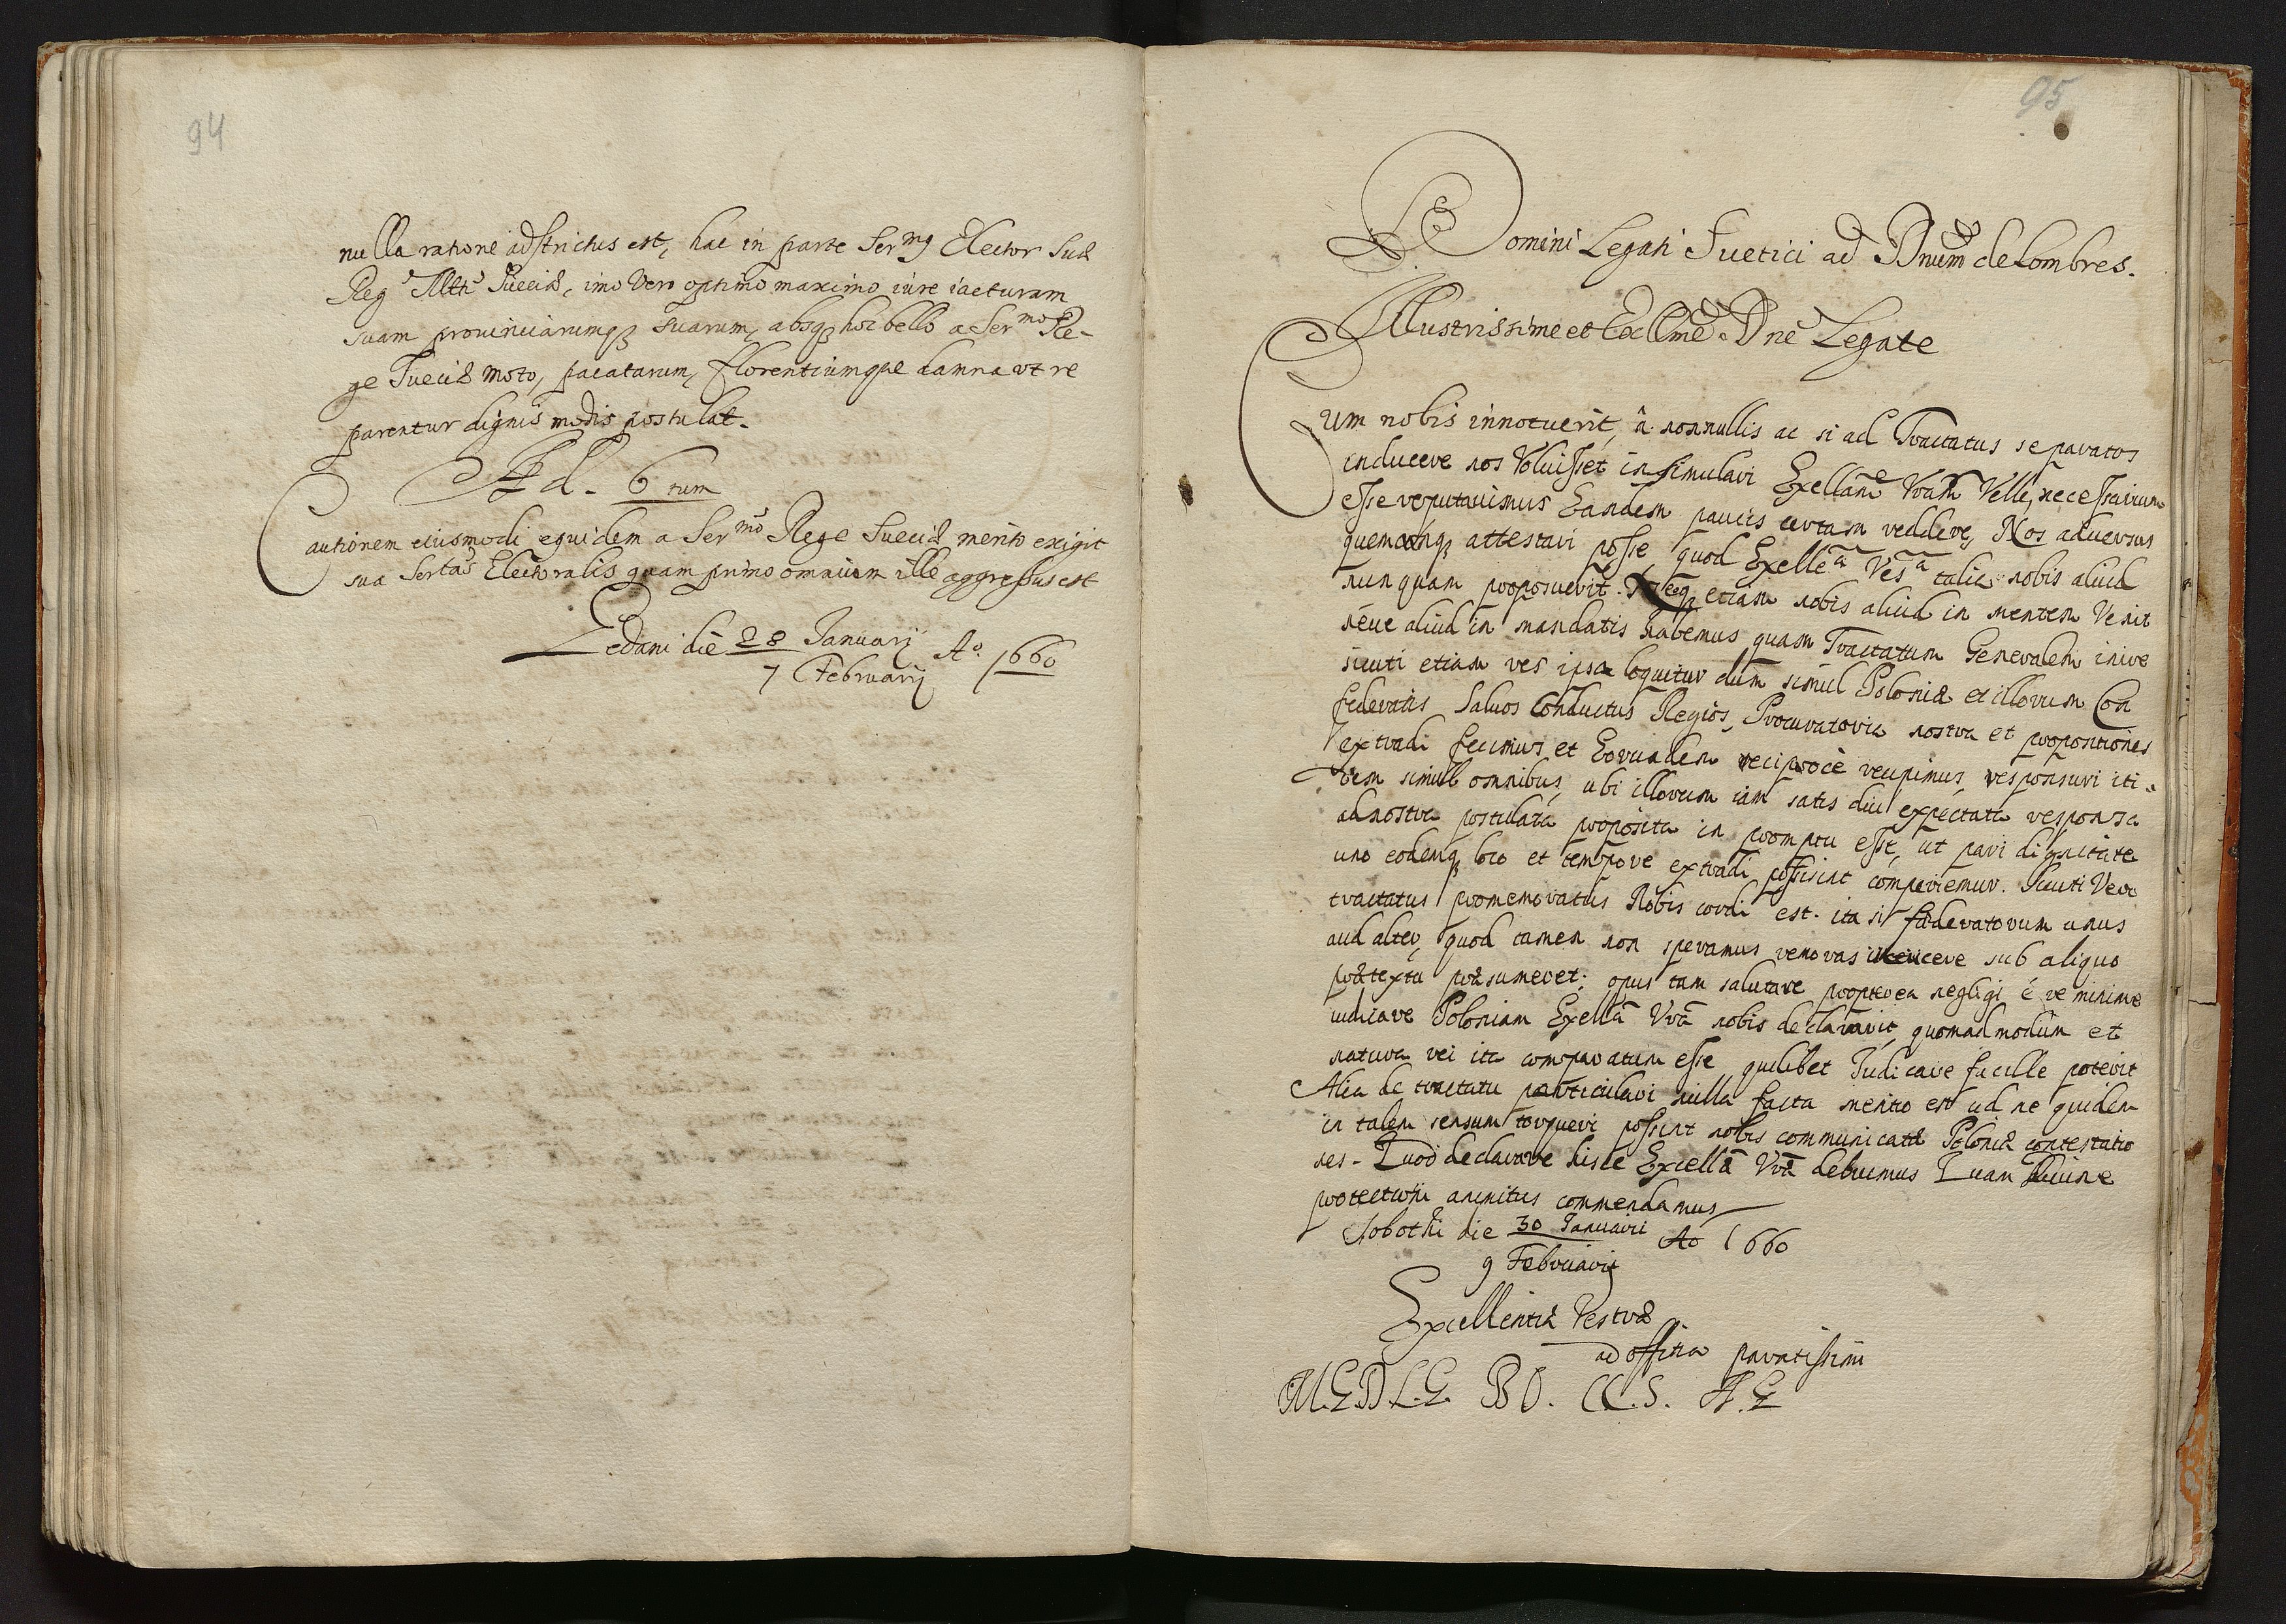 94
nulla ratione adstrictus est, hac in parte Ser^mg Elector Suæ
Reg Altt Sueciæ, imo Vero optimo maximo iure iacturam
suam prouinciarumq; suarum, absq; hoc bello a Ser^mo Re-
ge Sueciæ moto, pacatarum, florentiumque damna vt re
parentur dignis modis postulat.
Ad. 6tum
Cautionem eiusmodi equidem a Ser^mo Rege Sueciæ merito exigit
sua Sertas Electoralis quam primo omnium ille aggressus est
Gedani die 28 Januarij A^o. 1660
7 Februarij
95
Domini Legati Suetici ad Dnum de Lombres.
Illustrissime et Excllme Dne Legate
Cum nobis innotuerit, à nonnullis ac si ad Tractatus separatos
inducere nos Voluisset insimulari Exellame Vram Velle, necessarium
esse reputauimus Eandem paucis certam reddere, Nos aduersus
quemcunq; attestari posse, quod Exellea Vesa talia nobis aliud
nunquam proposuerit. Neq; etiam nobis aliud in mentem Venit
neue aliud in mandatis habemus quam Tractatum Generalem inire
sicuti etiam res ipsa loquitur dum simul Poloniæ et illorum Con
federatis Saluos Conductus Regios, Procuratoria nostra et propositiones
extradi fecimus et Eorundem reciproce recipimus, responsuri iti-
dem simul omnibus, ubi illorum iam satis diu expectata responsa
ad nostra postulata proposita in promptu esse, ut pari dignitate
uno eodemq; loco et tempore extradi possint comperiemur. Sicuti Vero
tractatus promemoratus Nobis cordi est. ita si fæderatorum unus
aud alter, quod tamen non speramus remoras inducere sub aliquo
prætextu præsumeret; opus tam salutare propterea negligi è re minime
iudicare Poloniam Exellã Vrã nobis declaravit, quomadmodum et
natura rei ita comparatum esse quilibet Iudicare facille poterit
Alia de tractatu particulari nulla facta mentio est ud ne quidem
in talem sensum torqueri possint nobis communicatæ Poloniæ contestatio
nes. Quod declarare hisce Excellã Vræ debuimus Quam Diuine
protectioni animitus commendamus
Sobothi die 30 Januarii Ao 1660
9 Februarij
Excellentiæ Vestræ
ad officia paratissimi
M.G.D.L.G. B O. C C.S. A.G